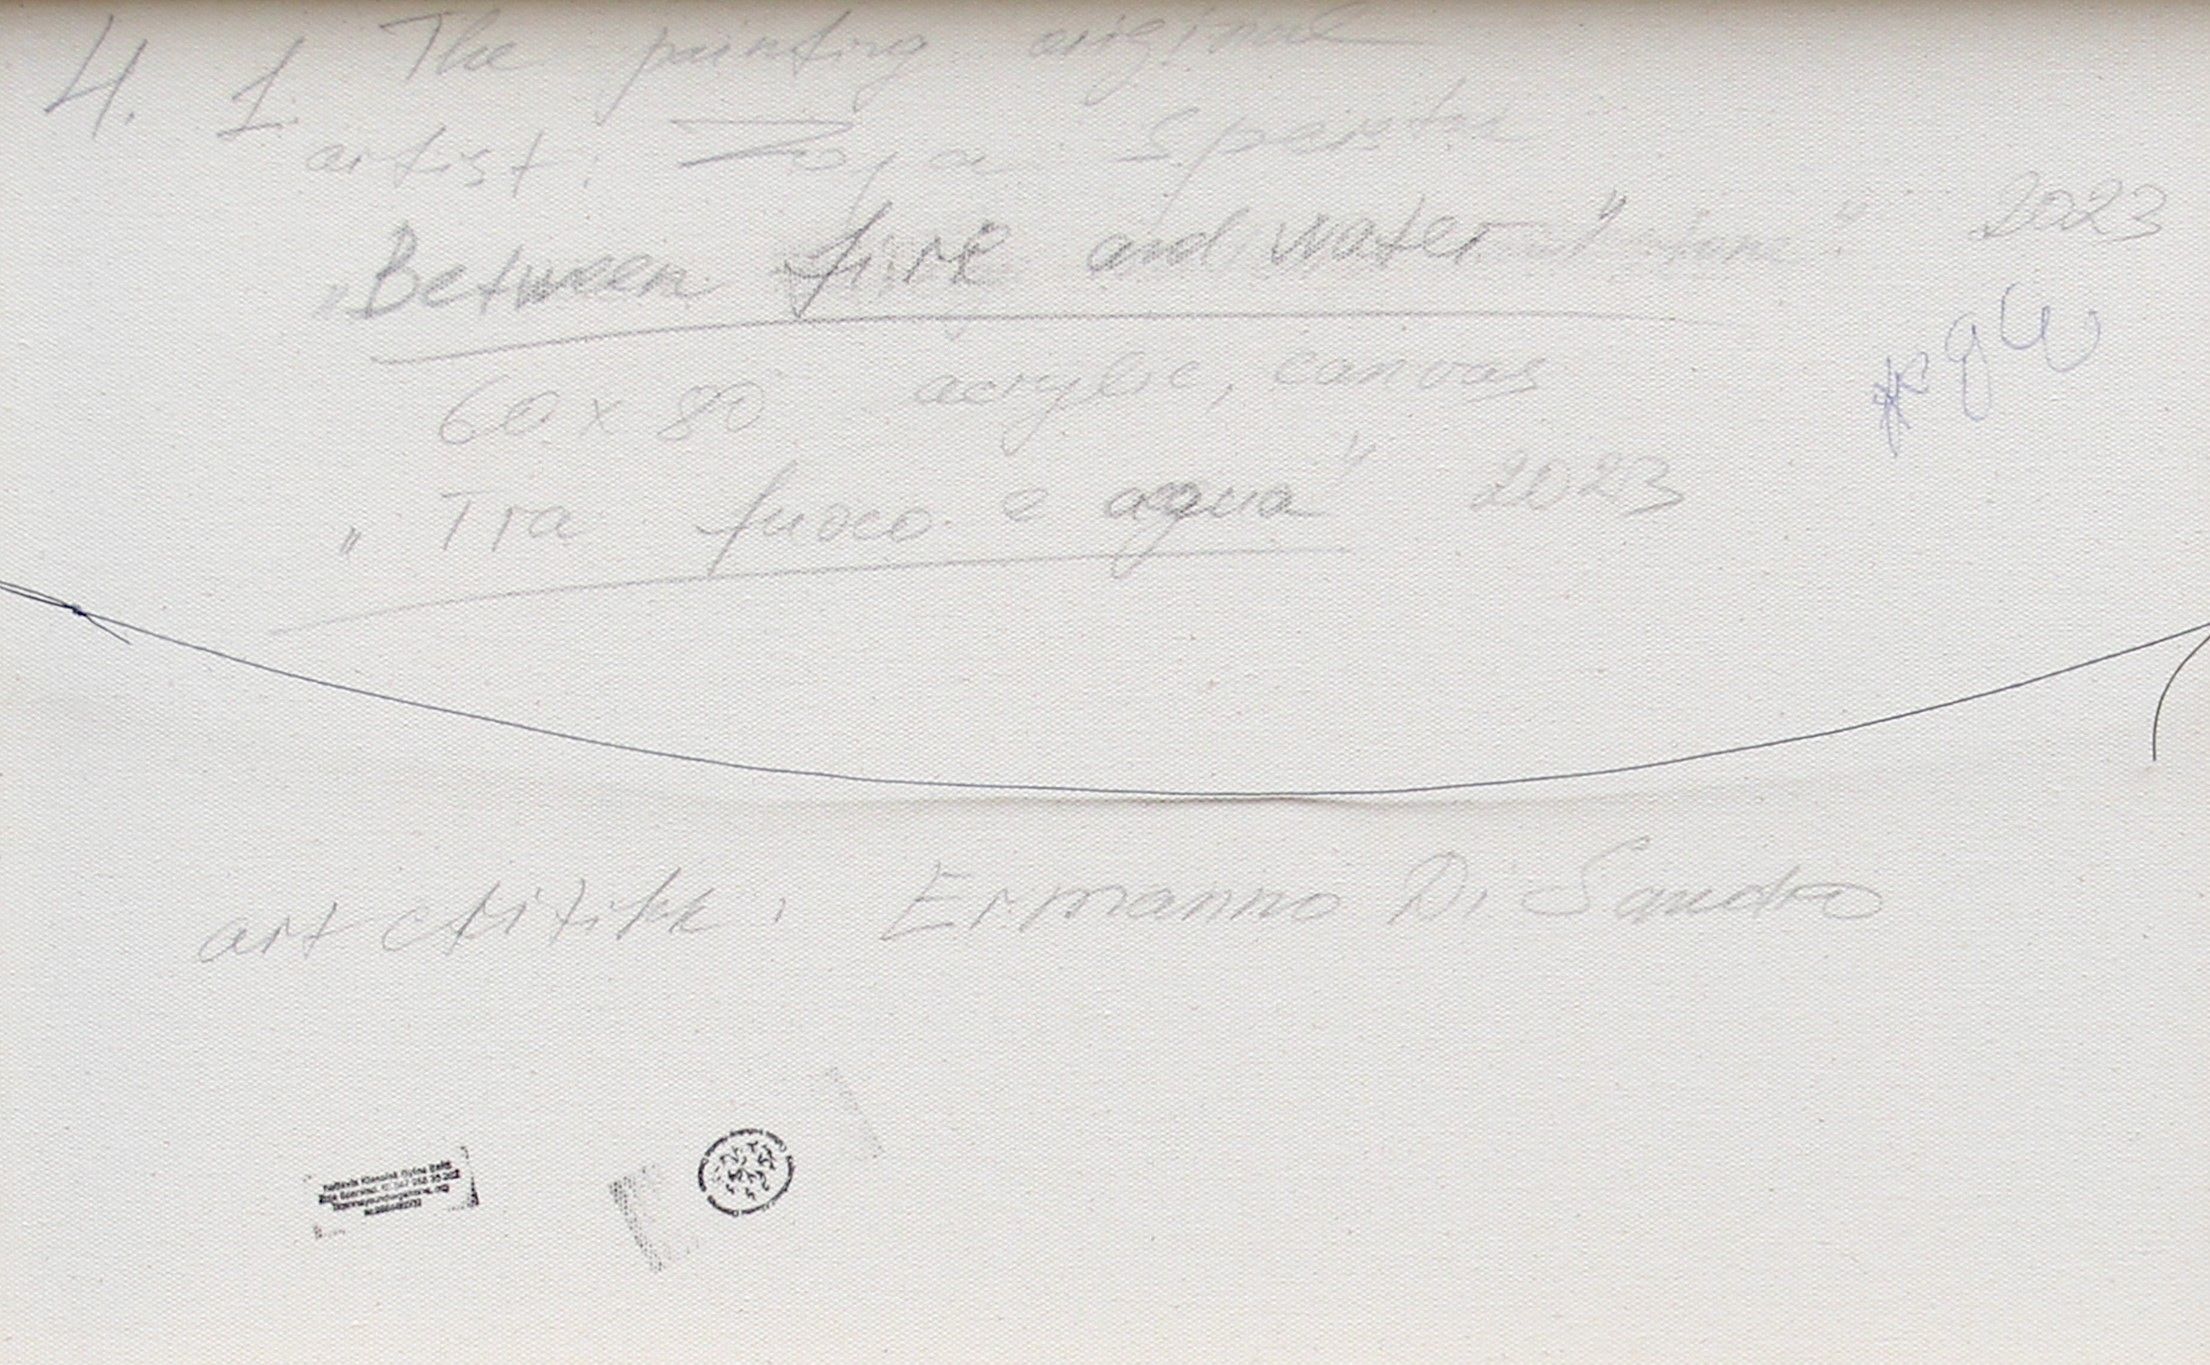 4. 1 The painting original
artist: Zoja Sperstad
„Between fire and water" 2023
60 x 80 acrylic, canvas
„Tra fuoco e acqua" 2023
art ckritikk: Ermanno Di Sandro